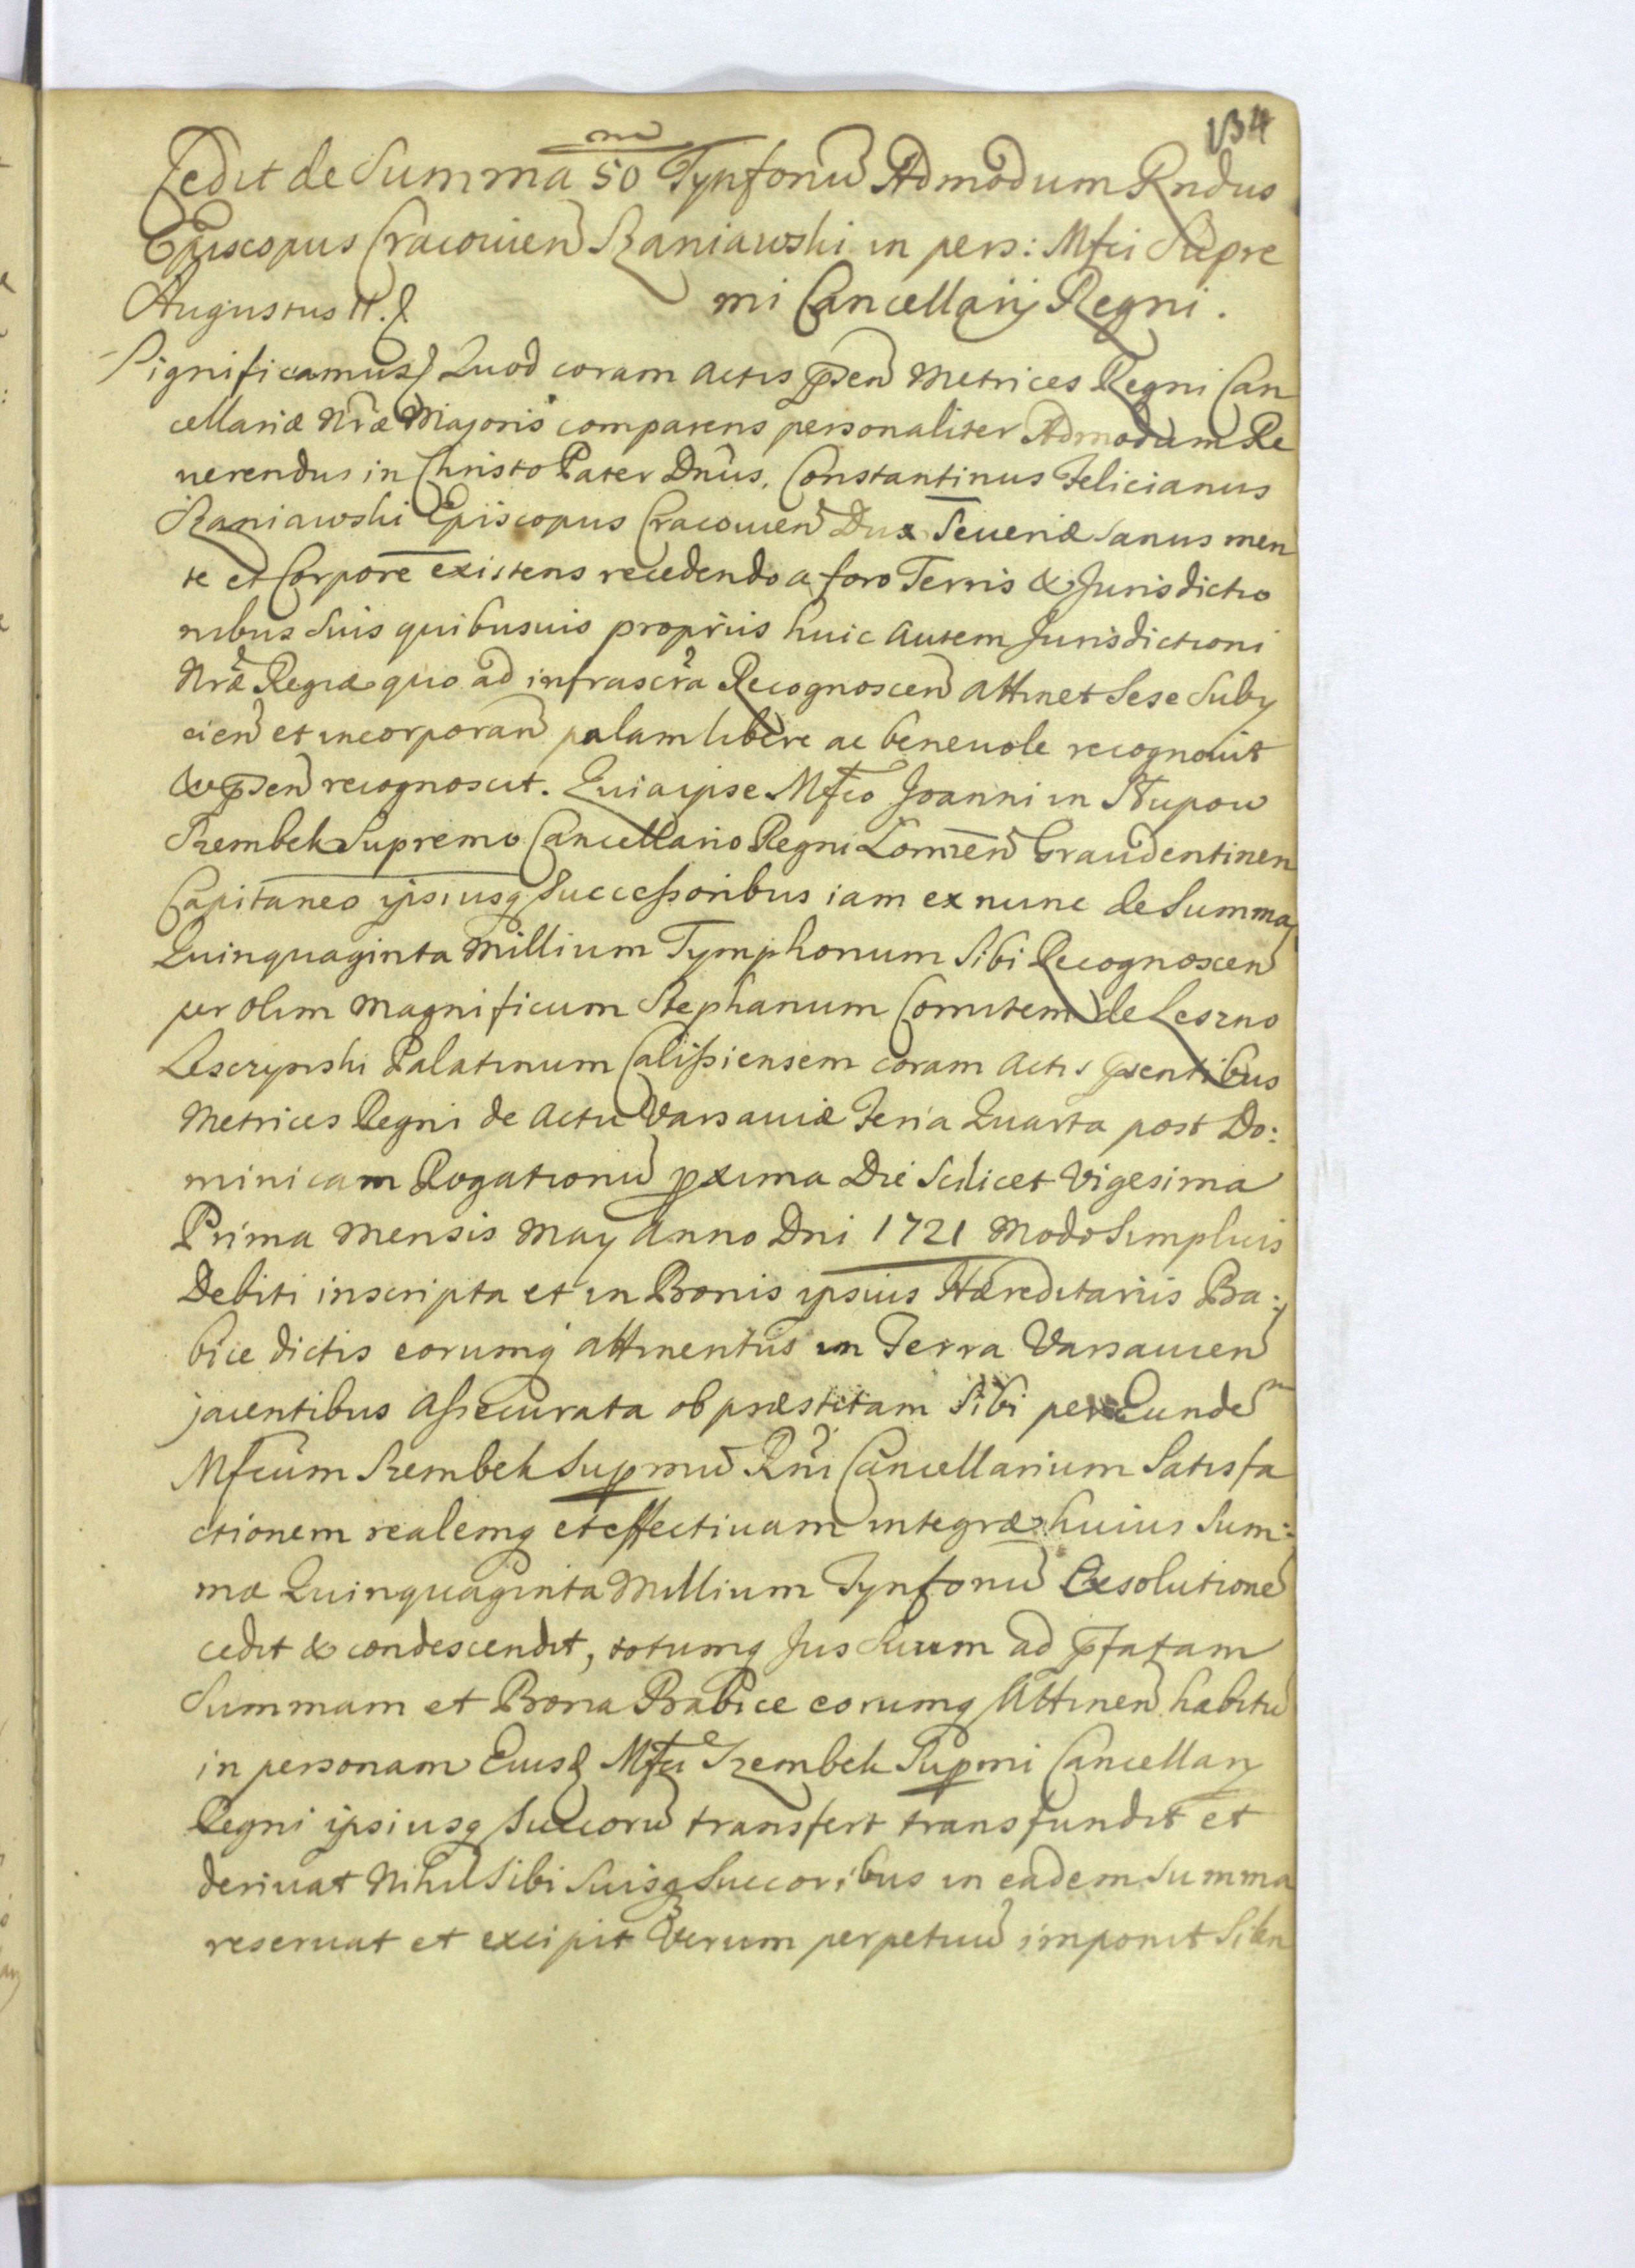 134
Cedit de Summa 50 m Tynfonũ Admodum Rndus
Episcopus Cracouien Szaniawski in pers: Mfci Supre
Augustus II. &
mi Cancellarij Regni.
Significamus & Quod coram Actis p̃sen Metrices Regni Can
cellariæ Nr̃æ Majoris comparens personaliter Admodum Re
uerendus in Christo Pater Dnus. Constantinus Felicianus
Szaniawski Episcopus Cracouien Dux Seueriæ Sanus men
te et Corpore existens recedendo a foro Terris & Jurisdictio
nibus Suis quibusuis proprijs huic Autem Jurisdictioni
Nr̃æ Regiæ quo ad infrascr̃a Recognoscen attinet Sese Subij
cien et incorporan palam libere ac beneuole recognouit
& p̃sen recognoscit. Quia ipse Mfco Joanni in Słupow
Szembek Supremo Cancellario Regni Lomzen Graudentinen
Capitaneo ipsiusq Successoribus iam ex nunc de Summa
Quinquaginta Millium Tymphonum Sibi Recognoscen
per olim Magnificum Stephanum Comitem de Leszno
Lesczynski Palatinum Calissiensem coram Actis p̃sentibus
Metrices Regni de Actu Varsauiæ Feria Quarta post Do:
minicam Rogationũ pxima Die Scilicet Vigesima
Prima Mensis May Anno Dni 1721 Modo Simplicis
Debiti inscripta et in Bonis ipsius Hæreditarijs Ba:
bice dictis eorumq attinentijs in Terra Varsauien
jacentibus Assecurata ob præstitam Sibi per Eundẽ
Mfcum Szembek Supmũ Rñi Cancellarium Satisfa
ctionem realemq et effectiuam integræ huius Sum:
mæ Quinquaginta Millium Tynfonũ Exsolutionẽ
cedit & condescendit, totumq Jus Suum ad p̃fatam
Summam et Bona Babice eorumq Attinen habitũ
in personam Eiusd Mfci Szembek Supmi Cancellarij
Regni ipsiusq Succorũ transfert transfundit et
deriuat Nihil Sibi Suisq Succoribus in eadem Summa
reseruat et excipit Verum perpetuũ imponit Silen